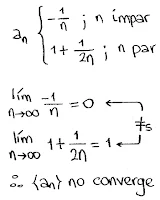 aₙ { -1/n ; n impar
1 + 1/2n ; n par
lím n→∞ -1/n = 0
≠s
lím n→∞ 1 + 1/2n = 1
∴ {aₙ} no converge